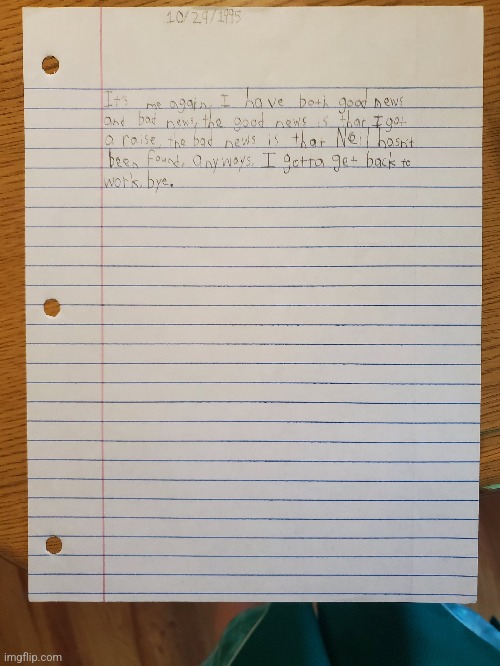 10/29/1995
It's me again, I have both good news
and bad news, the good news is thar I got
a raise, the bad news is thar Neil hasn't
been found, anyways, I gotta get back to
work, bye.
imgflip.com